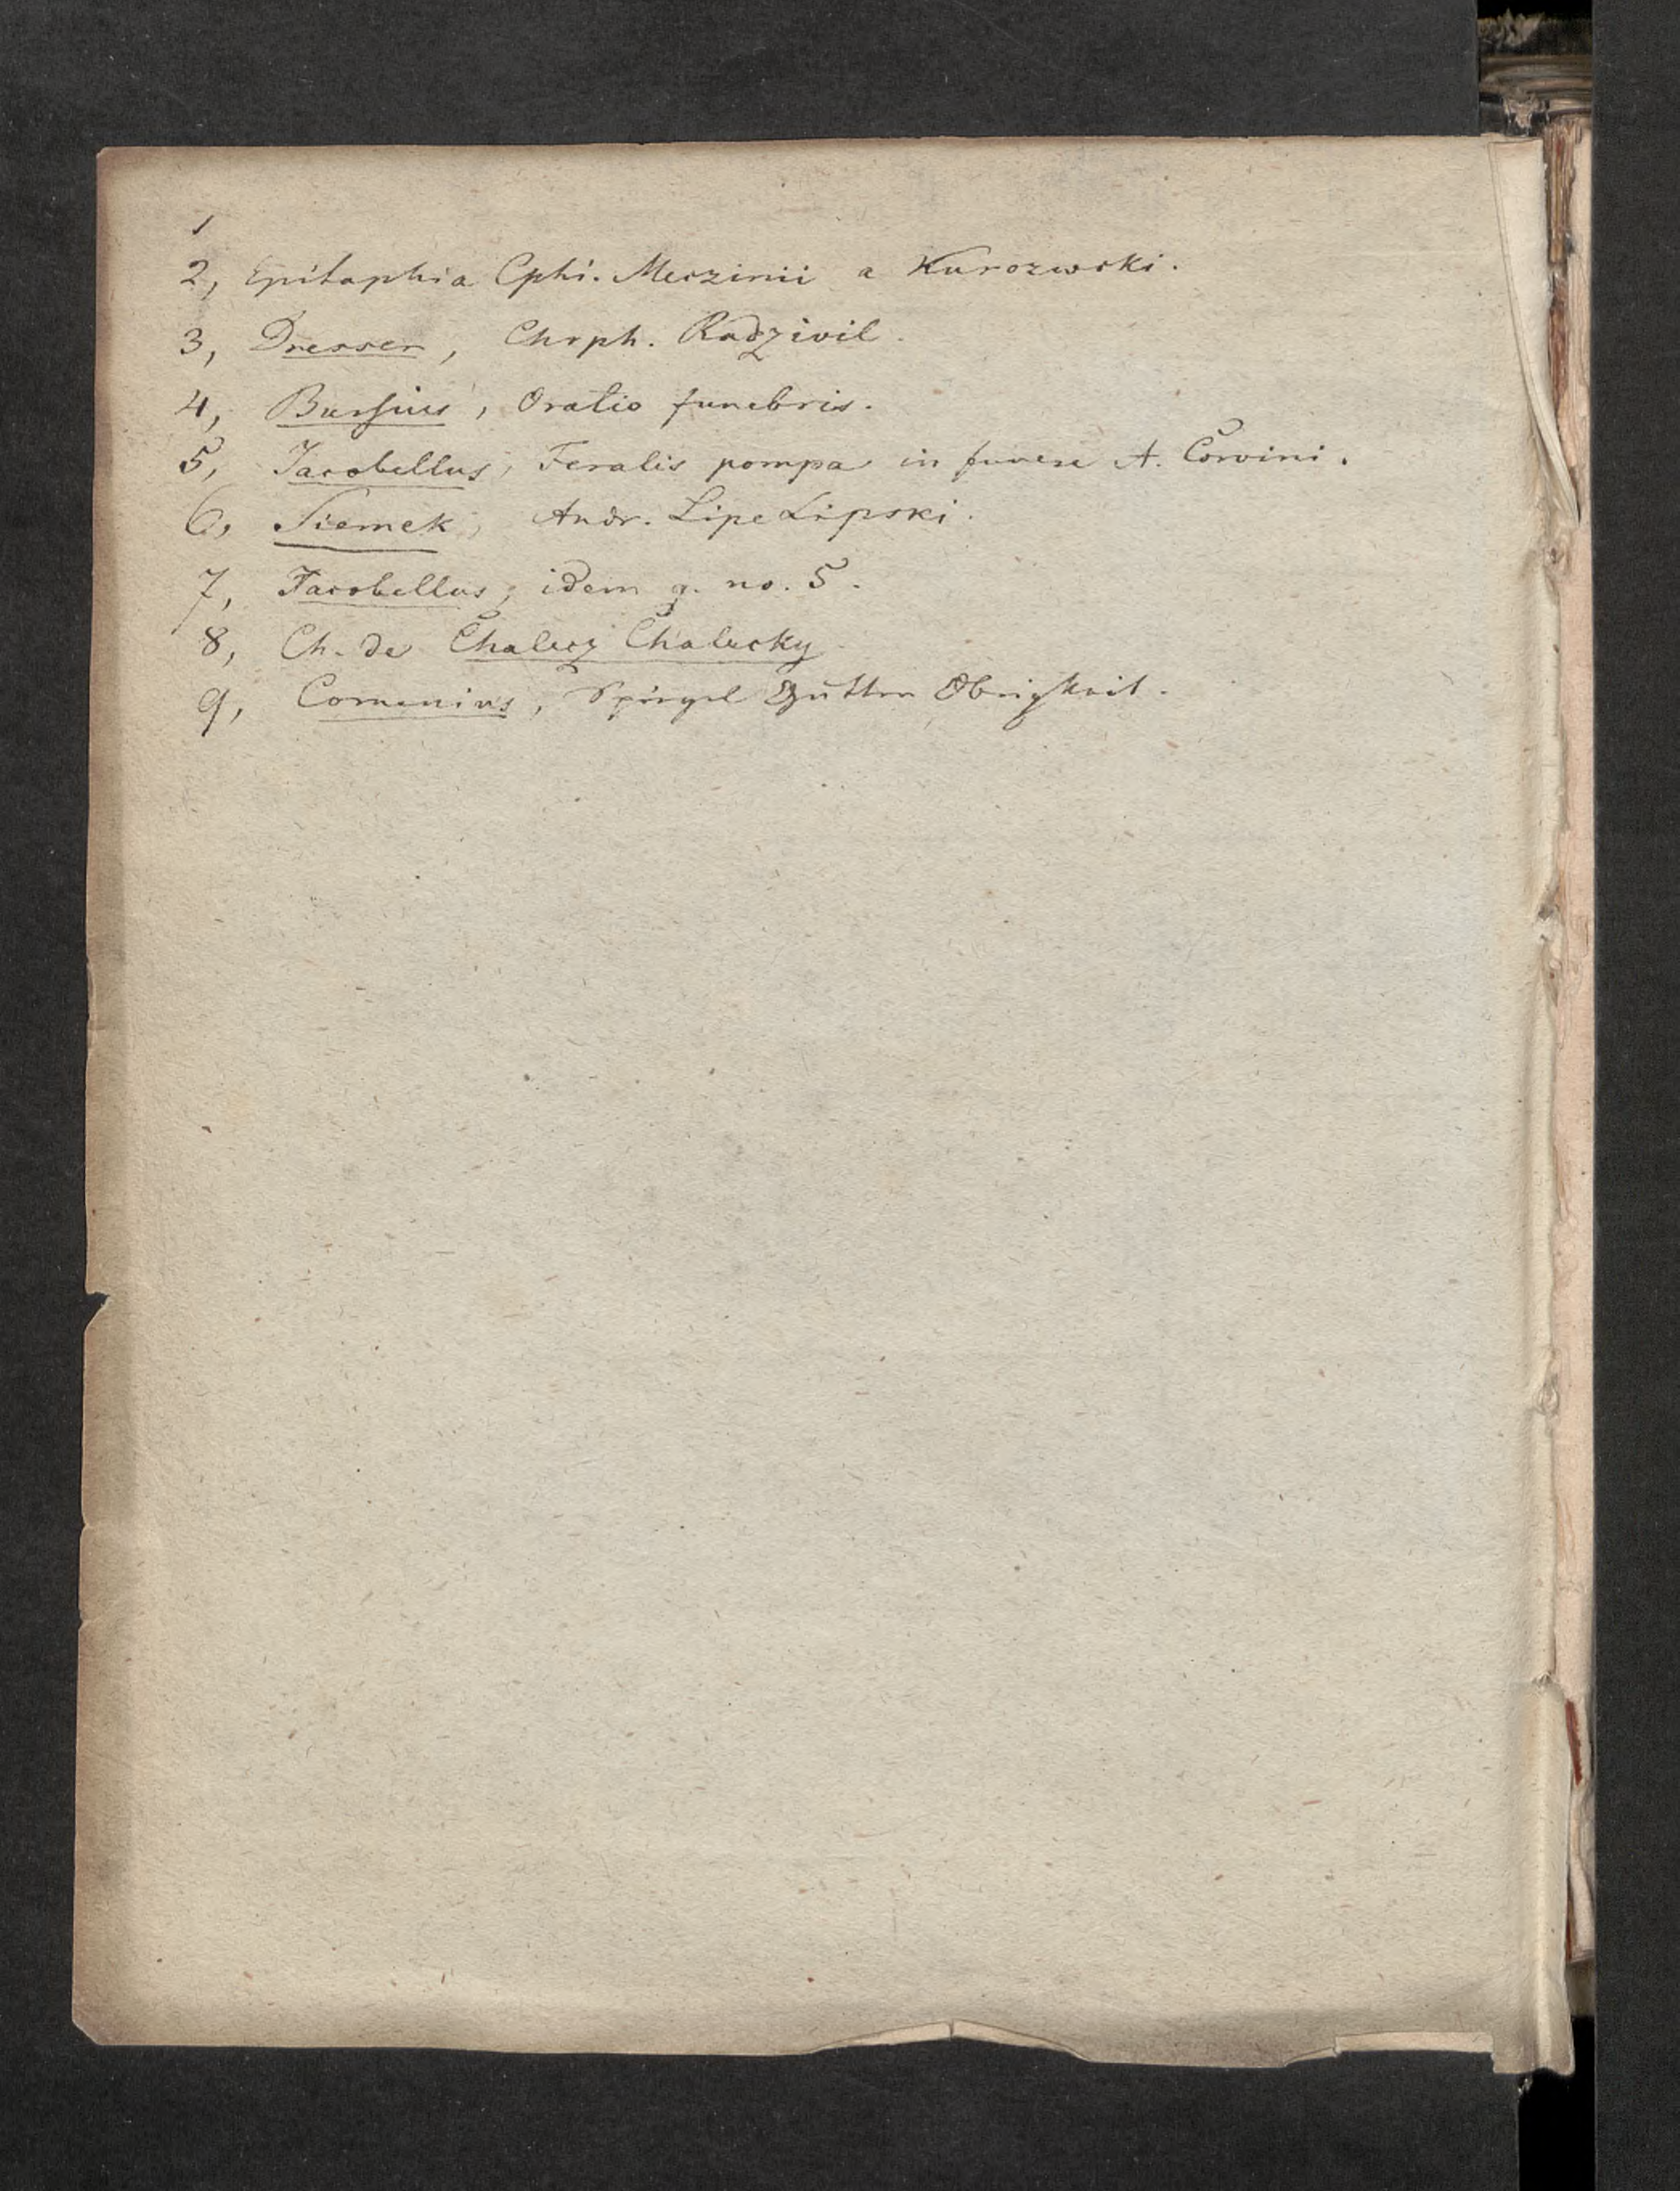 1
2, Epitaphia Cphi. Meczinii a Kurozwski.
3, Dresser, Chrph. Radzivil.
4, Bursius, Oratio funebris.
5, Jacobellus, Feralis pompa in funere A. Corvini.
6, Siemek, Andr. Lipe Lipski.
7, Jacobellus, idem q. no. 5.
8, Ch. de Chalecz Chalecky
9, Comenius, Spiegel gutter Obrigkeit.